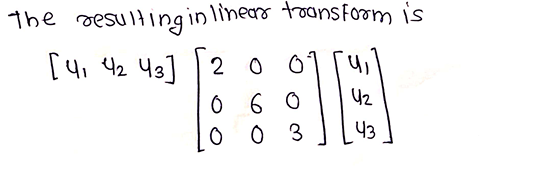 The resulting in linear transform is
[y₁ y₂ y₃] [2 0 0] [y₁]
[0 6 0] [y₂]
[0 0 3] [y₃]